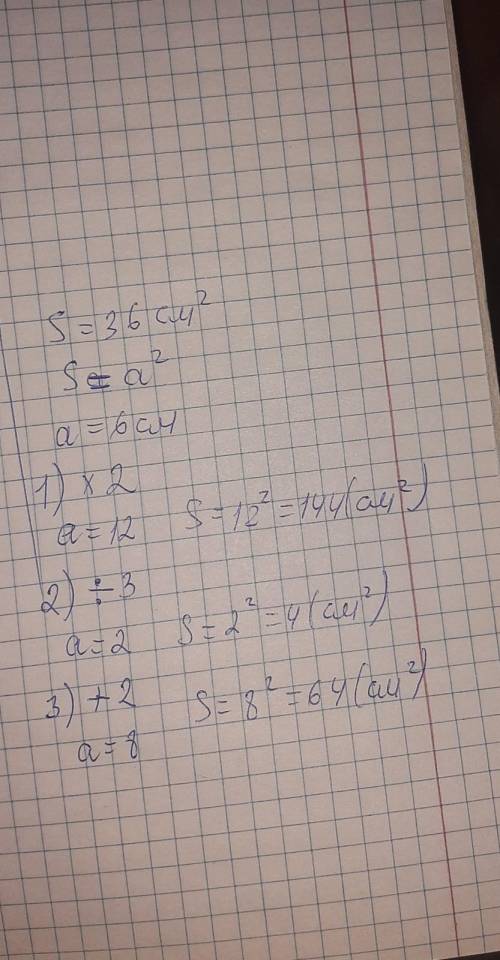 S = 36 см²
S = a²
a = 6 см
1) × 2
a = 12 S = 12² = 144 (см²)
2) ÷ 3
a = 2 S = 2² = 4 (см²)
3) + 2
a = 8 S = 8² = 64 (см²)